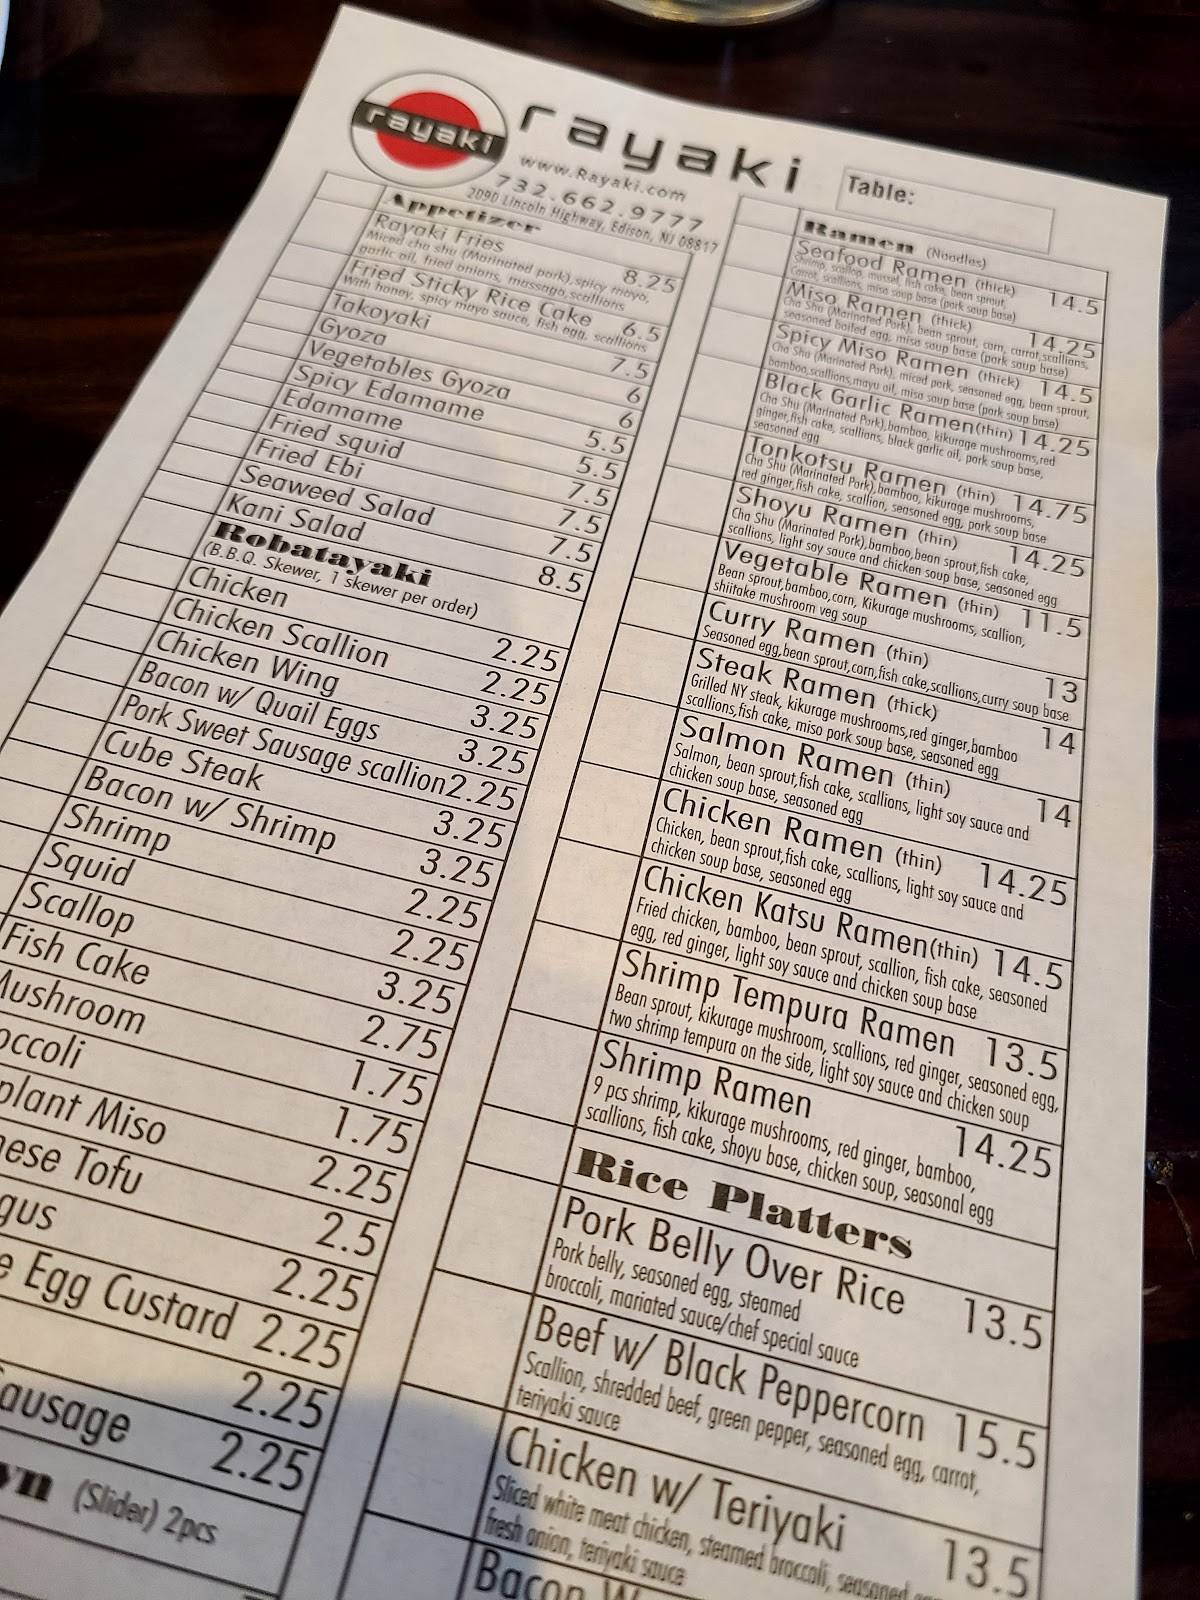 rayaki
rayaki
www.Rayaki.com
732.662.9777
2090 Lincoln Highway, Edison, NJ 08817
Table:
Appetizer
Rayaki Fries 8.25
Miced cha shu (Marinated pork), spicy mayo,
garlic oil, fried onions, massago, scallions
Fried Sticky Rice Cake 6.5
With honey, spicy mayo sauce, fish egg, scallions
Takoyaki 7.5
Gyoza 6
Vegetables Gyoza 6
Spicy Edamame 5.5
Edamame 5.5
Fried squid 7.5
Fried Ebi 7.5
Seaweed Salad 7.5
Kani Salad 8.5
Robatayaki
(B.B.Q. Skewer, 1 skewer per order)
Chicken 2.25
Chicken Scallion 2.25
Chicken Wing 3.25
Bacon w/ Quail Eggs 3.25
Pork Sweet Sausage scallion 2.25
Cube Steak 3.25
Bacon w/ Shrimp 3.25
Shrimp 2.25
Squid 2.25
Scallop 3.25
Fish Cake 2.75
Mushroom 1.75
occoli 1.75
plant Miso 2.25
nese Tofu 2.5
gus 2.25
e Egg Custard 2.25
2.25
ausage 2.25
wn (Slider) 2pcs
Ramen (Noodles)
Seafood Ramen (thick) 14.5
Shrimp, scallop, mussel, fish cake, bean sprout,
Carrot, scallions, miso soup base (pork soup base)
Miso Ramen (thick) 14.25
Cha Shu (Marinated Pork), bean sprout, corn, carrot, scallions,
seasoned boiled egg, miso soup base (pork soup base)
Spicy Miso Ramen (thick) 14.5
Cha Shu (Marinated Pork), miced pork, seasoned egg, bean sprout,
bamboo, scallions, mayu oil, miso soup base (pork soup base)
Black Garlic Ramen(thin) 14.25
Cha Shu (Marinated Pork), bamboo, kikurage mushrooms, red
ginger, fish cake, scallions, black garlic oil, pork soup base,
seasoned egg
Tonkotsu Ramen (thin) 14.75
Cha Shu (Marinated Pork), bamboo, kikurage mushrooms,
red ginger, fish cake, scallion, seasoned egg, pork soup base
Shoyu Ramen (thin) 14.25
Cha Shu (Marinated Pork), bamboo, bean sprout, fish cake,
scallions, light soy sauce and chicken soup base, seasoned egg
Vegetable Ramen (thin) 11.5
Bean sprout, bamboo, corn, Kikurage mushrooms, scallion,
shiitake mushroom veg soup
Curry Ramen (thin) 13
Seasoned egg, bean sprout, corn, fish cake, scallions, curry soup base
Steak Ramen (thick) 14
Grilled NY steak, kikurage mushrooms, red ginger, bamboo
scallions, fish cake, miso pork soup base, seasoned egg
Salmon Ramen (thin) 14
Salmon, bean sprout, fish cake, scallions, light soy sauce and
chicken soup base, seasoned egg
Chicken Ramen (thin) 14.25
Chicken, bean sprout, fish cake, scallions, light soy sauce and
chicken soup base, seasoned egg
Chicken Katsu Ramen(thin) 14.5
Fried chicken, bamboo, bean sprout, scallion, fish cake, seasoned
egg, red ginger, light soy sauce and chicken soup base
Shrimp Tempura Ramen 13.5
Bean sprout, kikurage mushroom, scallions, red ginger, seasoned egg,
two shrimp tempura on the side, light soy sauce and chicken soup
Shrimp Ramen 14.25
9 pcs shrimp, kikurage mushrooms, red ginger, bamboo,
scallions, fish cake, shoyu base, chicken soup, seasonal egg
Rice Platters
Pork Belly Over Rice 13.5
Pork belly, seasoned egg, steamed
broccoli, mariated sauce/chef special sauce
Beef w/ Black Peppercorn 15.5
Scallion, shredded beef, green pepper, seasoned egg, carrot,
teriyaki sauce
Chicken w/ Teriyaki 13.5
Sliced white meat chicken, steamed broccoli, seasoned
fresh onion, teriyaki sauce
Bacon